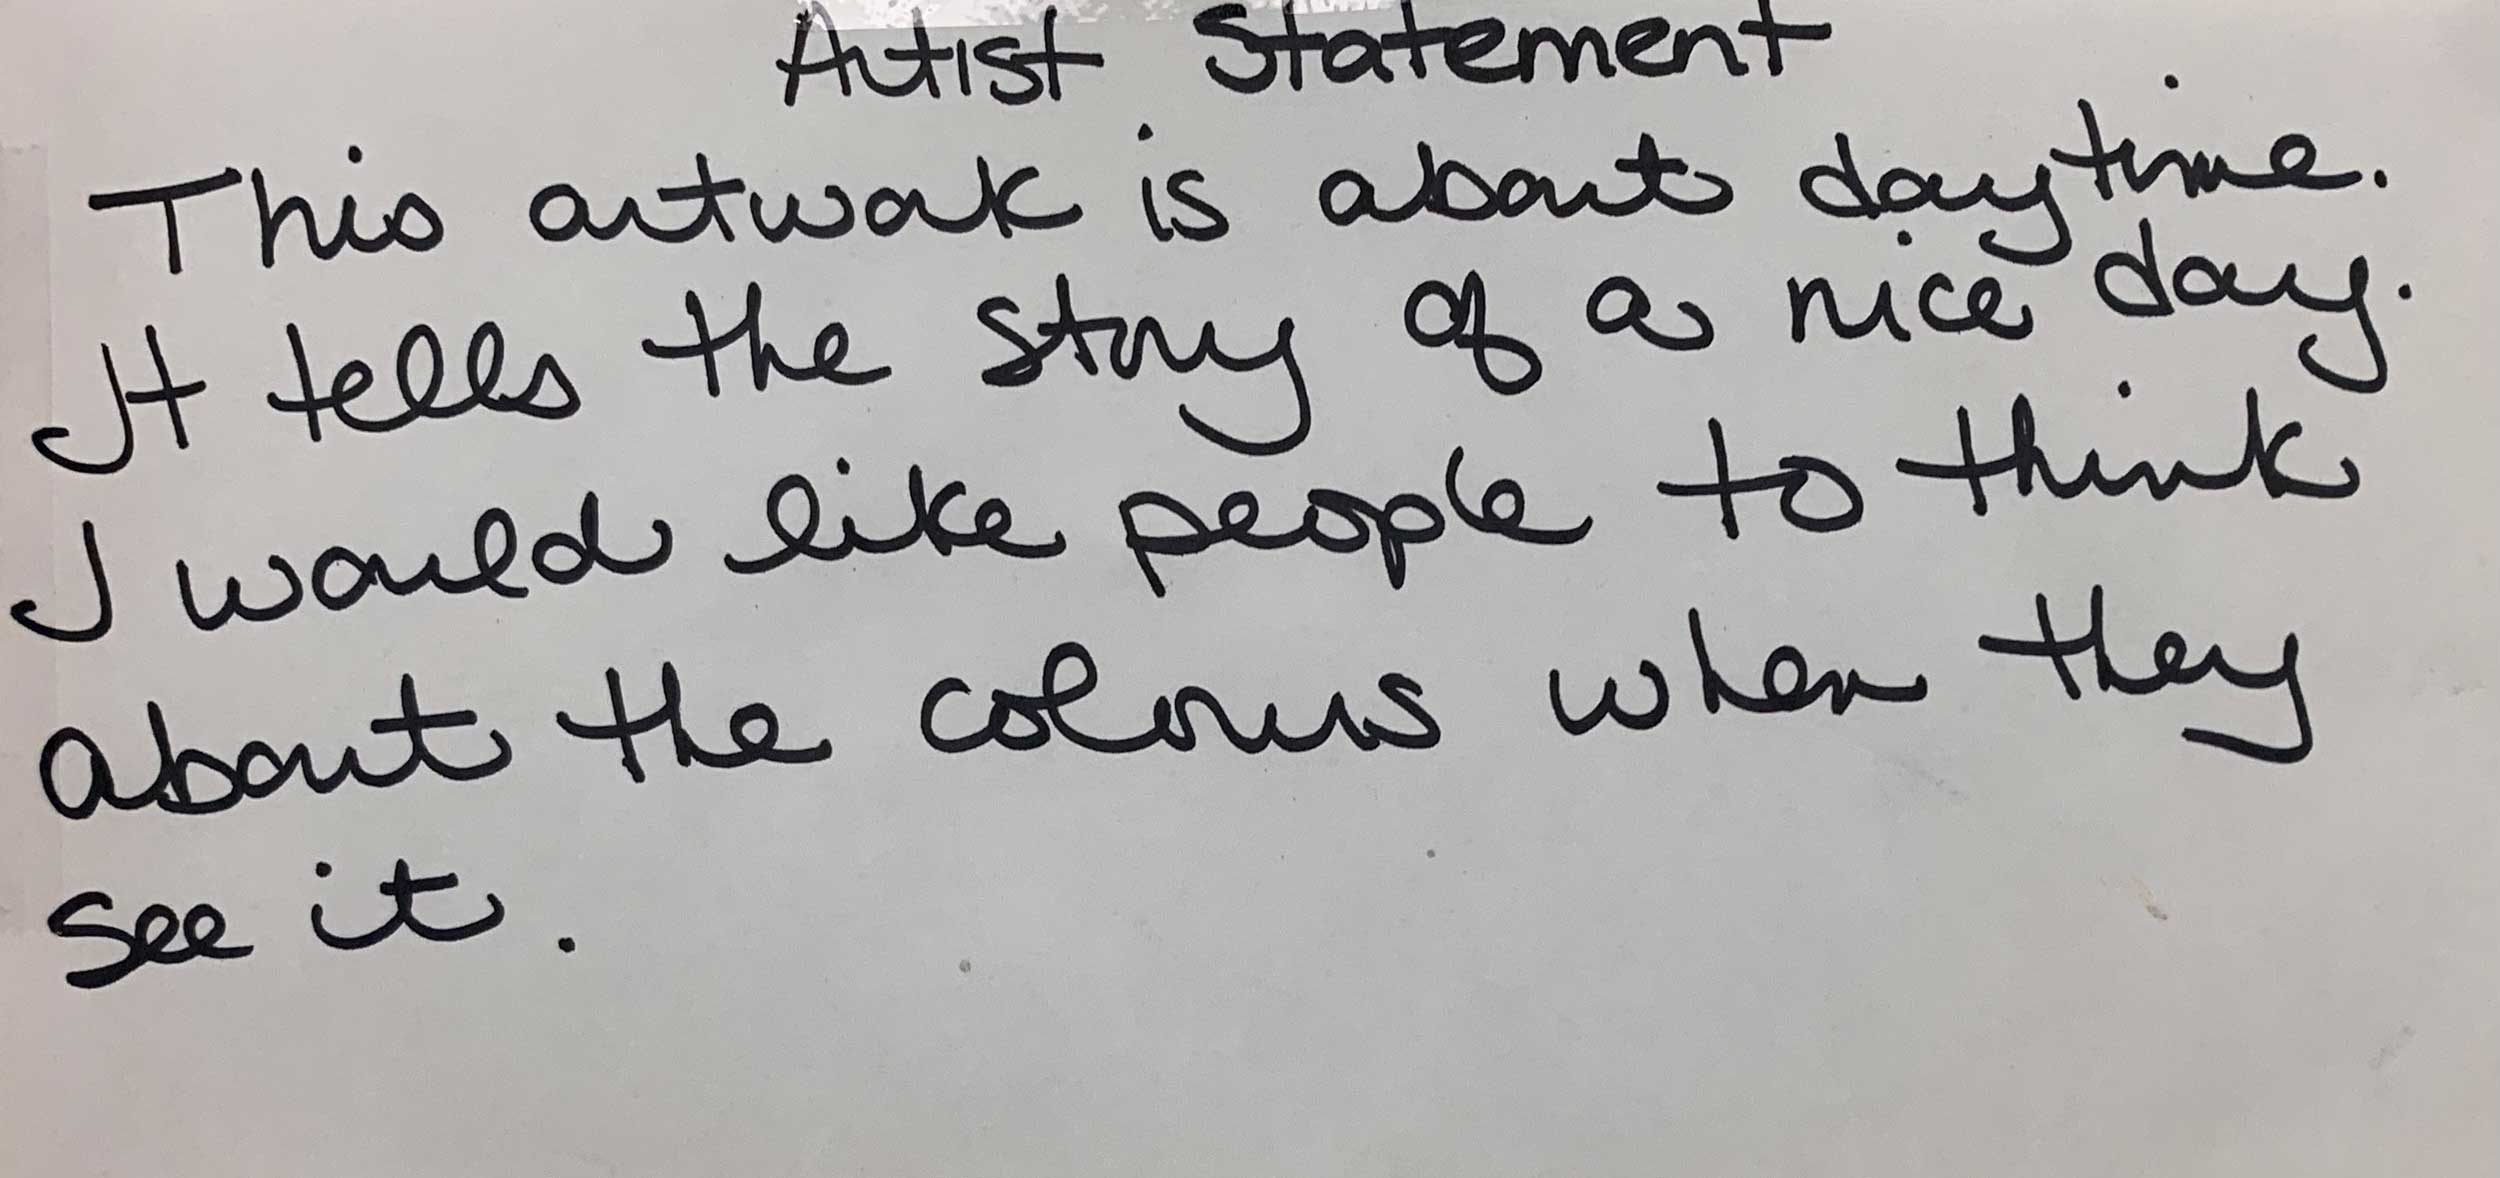 Artist Statement
This artwork is about daytime.
It tells the story of a nice day.
I would like people to think
about the colours when they
see it.